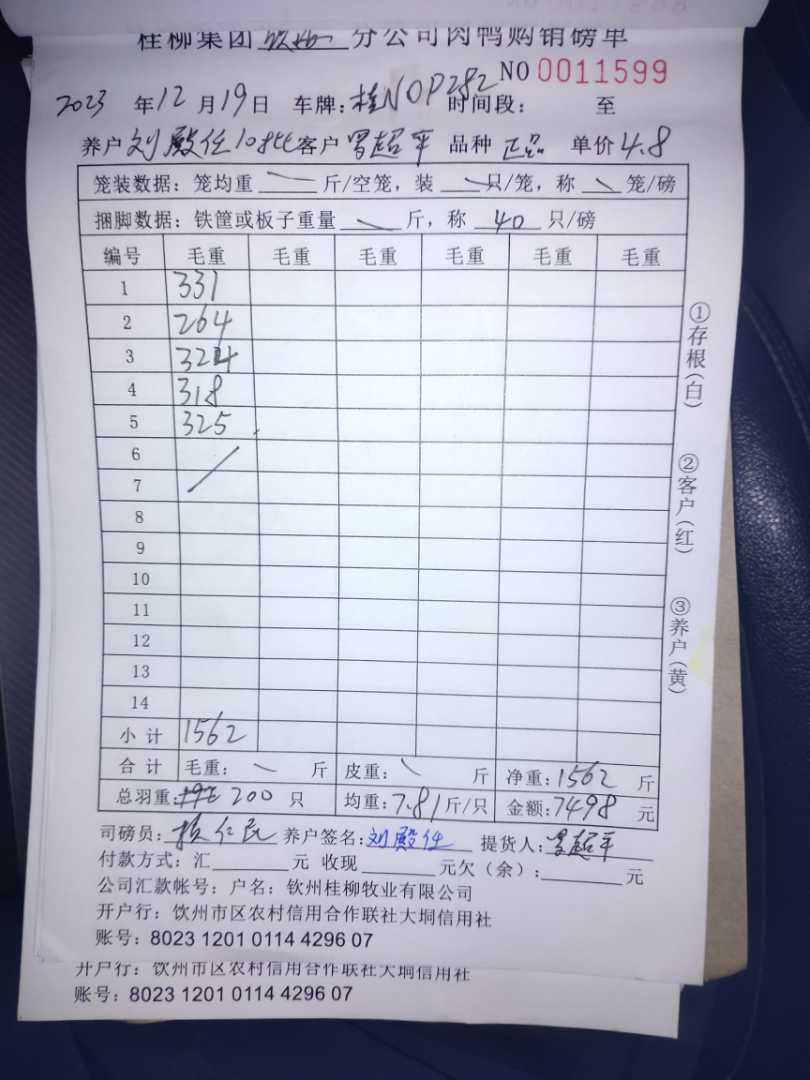 桂柳集团 钦州 分公司肉鸭购销磅单
NO 0011599
2023 年 12 月 19 日 车牌：桂NOP282 时间段： 至
养户 刘殿任 客户 罗超平 品种 正品 单价 4.8
笼装数据：笼均重 斤/空笼，装 只/笼，称 笼/磅
捆脚数据：铁筐或板子重量 斤，称 40 只/磅
编号 毛重 毛重 毛重 毛重 毛重 毛重
1 331
2 264
3 324
4 318
5 325
6
7
8
9
10
11
12
13
14
小计 1562
合计 毛重： 斤 皮重： 斤 净重：1562 斤
总羽重： 200 只 均重：7.81 斤/只 金额：7498 元
司磅员： 仁民 养户签名：刘殿任 提货人：罗超平
付款方式：汇 元 收现 元欠（余）： 元
公司汇款帐号：户名：钦州桂柳牧业有限公司
开户行：钦州市区农村信用合作联社大垌信用社
账号：8023 1201 0114 4296 07
①存根（白）
②客户（红）
③养户（黄）
开户行：钦州市区农村信用合作联社大垌信用社
账号：8023 1201 0114 4296 07